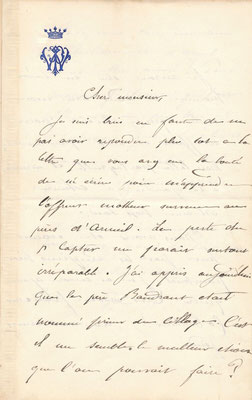 Cher monsieur,
Je suis bien en faute de ne
pas avoir répondu plus tôt à la
lettre que vous avez eu la bonté
de m'écrire pour m'apprendre
l'affreux malheur survenu aux
pères d'Arcueil. La perte du
P. Captier me paraît surtout
irréparable. J'ai appris aujourd'hui
que le père Baudrant était
nommé prieur du collège. C'est
il me semble le meilleur choix
que l'on pouvait faire ?